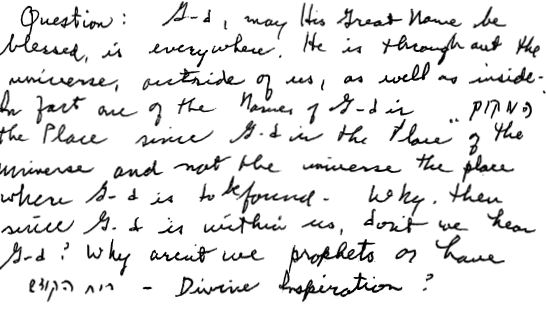 Question: G-d, may His Great Name be
blessed, is everywhere. He is throughout the
universe, outside of us, as well as inside.
In fact one of the Names of G-d is "המקום
the Place since G-d is the "Place" of the
universe and not the universe the place
where G-d is to be found. Why, then
since G-d is within us, don't we hear
G-d? Why aren't we prophets or have
רוח הקודש - Divine Inspiration?